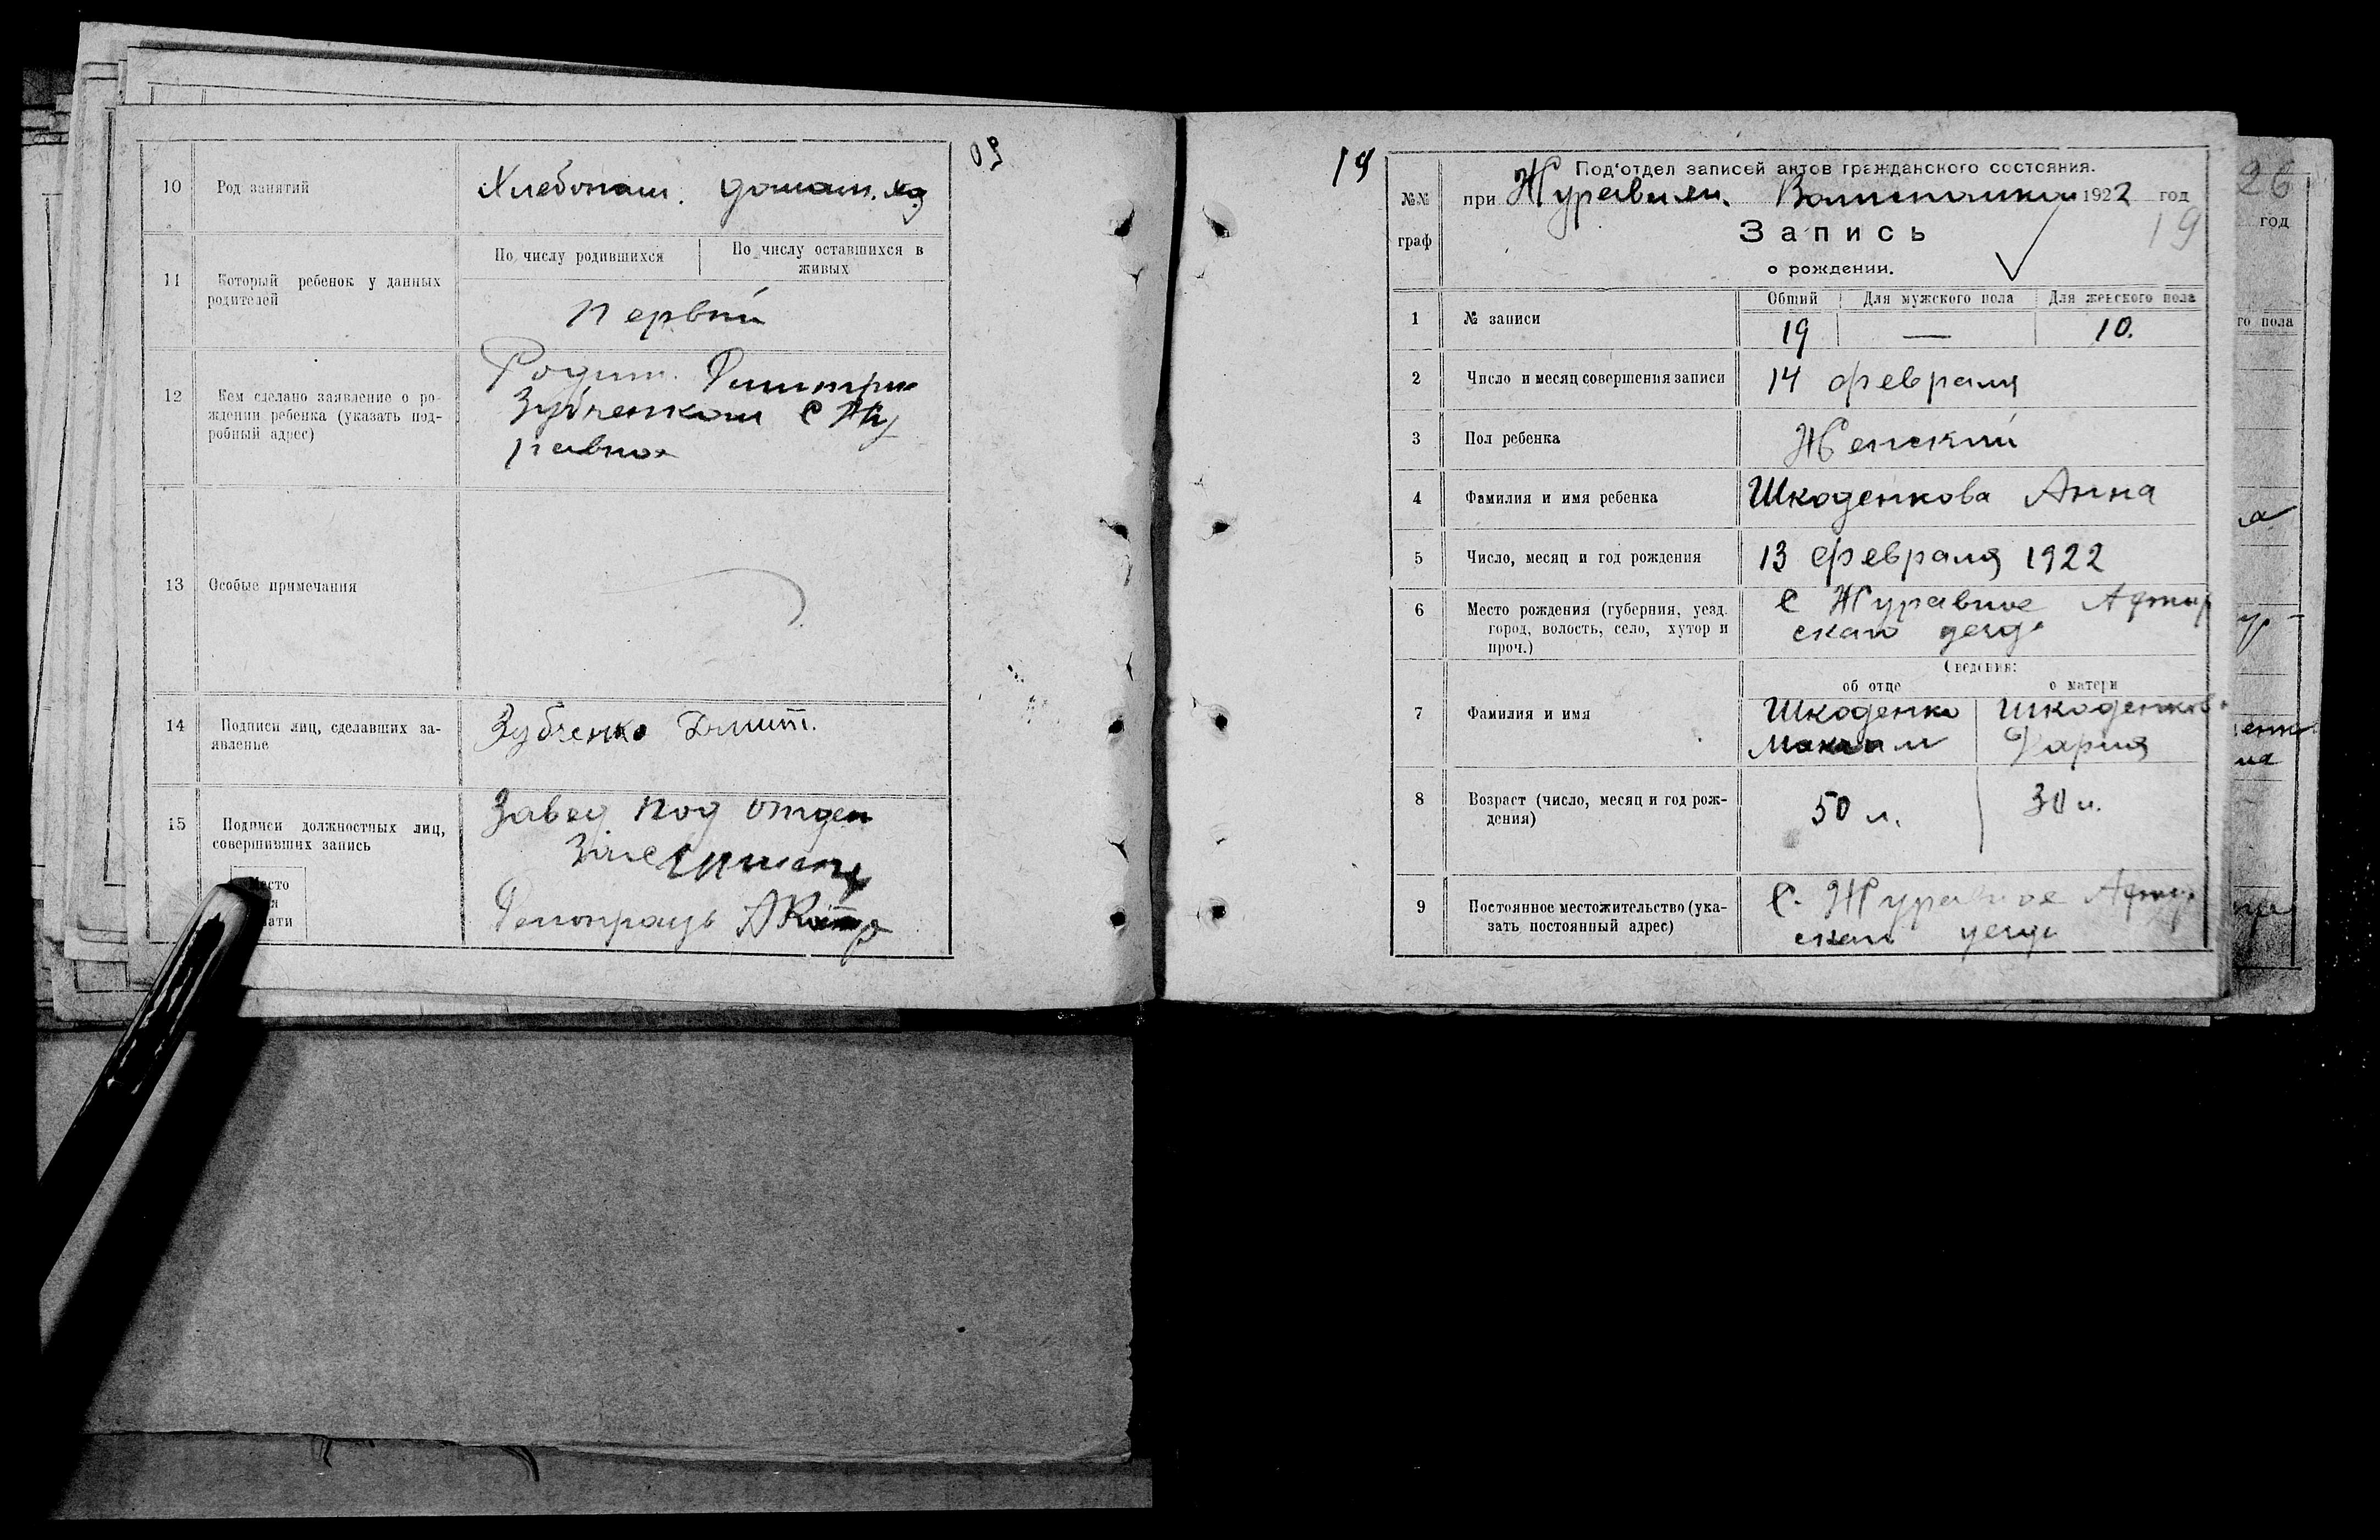 10 Род занятий Хлебопаш. домаш. хоз
11 Который ребенок у данных
родителей
По числу родившихся По числу оставшихся в
живых
Первый
12 Кем сделано заявление о ро-
ждении ребенка (указать под-
робный адрес)
Родит. Димитрие
Зубченком с Жу
равное
13 Особые примечания
14 Подписи лиц, сделавших за-
явленье
Зубченко Дмит.
15 Подписи должностных лиц,
совершивших запись
Завед под отдел
Делопроизв
19
Под'отдел записей актов гражданского состояния.
№№
граф
при Журавлен. 1922 год
19
Запись
о рождении.
Общий Для мужского пола Для женского пола
1 № записи 19 — 10.
2 Число и месяц совершения записи 14 февраля
3 Пол ребенка Женский
4 Фамилия и имя ребенка Шкоденкова Анна
5 Число, месяц и год рождения 13 февраля 1922
6 Место рождения (губерния, уезд
город, волость, село, хутор и
проч.)
с Журавное Ахтыр
скаго уезда
Сведения:
об отце о матери
7 Фамилия и имя
Шкоденко Шкоденкова
Максим Дария
8 Возраст (число, месяц и год рож-
дения)
50 л. 30 л.
9 Постоянное местожительство (ука-
зать постоянный адрес)
С. Журавное Ахтыр
скаго уезда
26
год
го пола